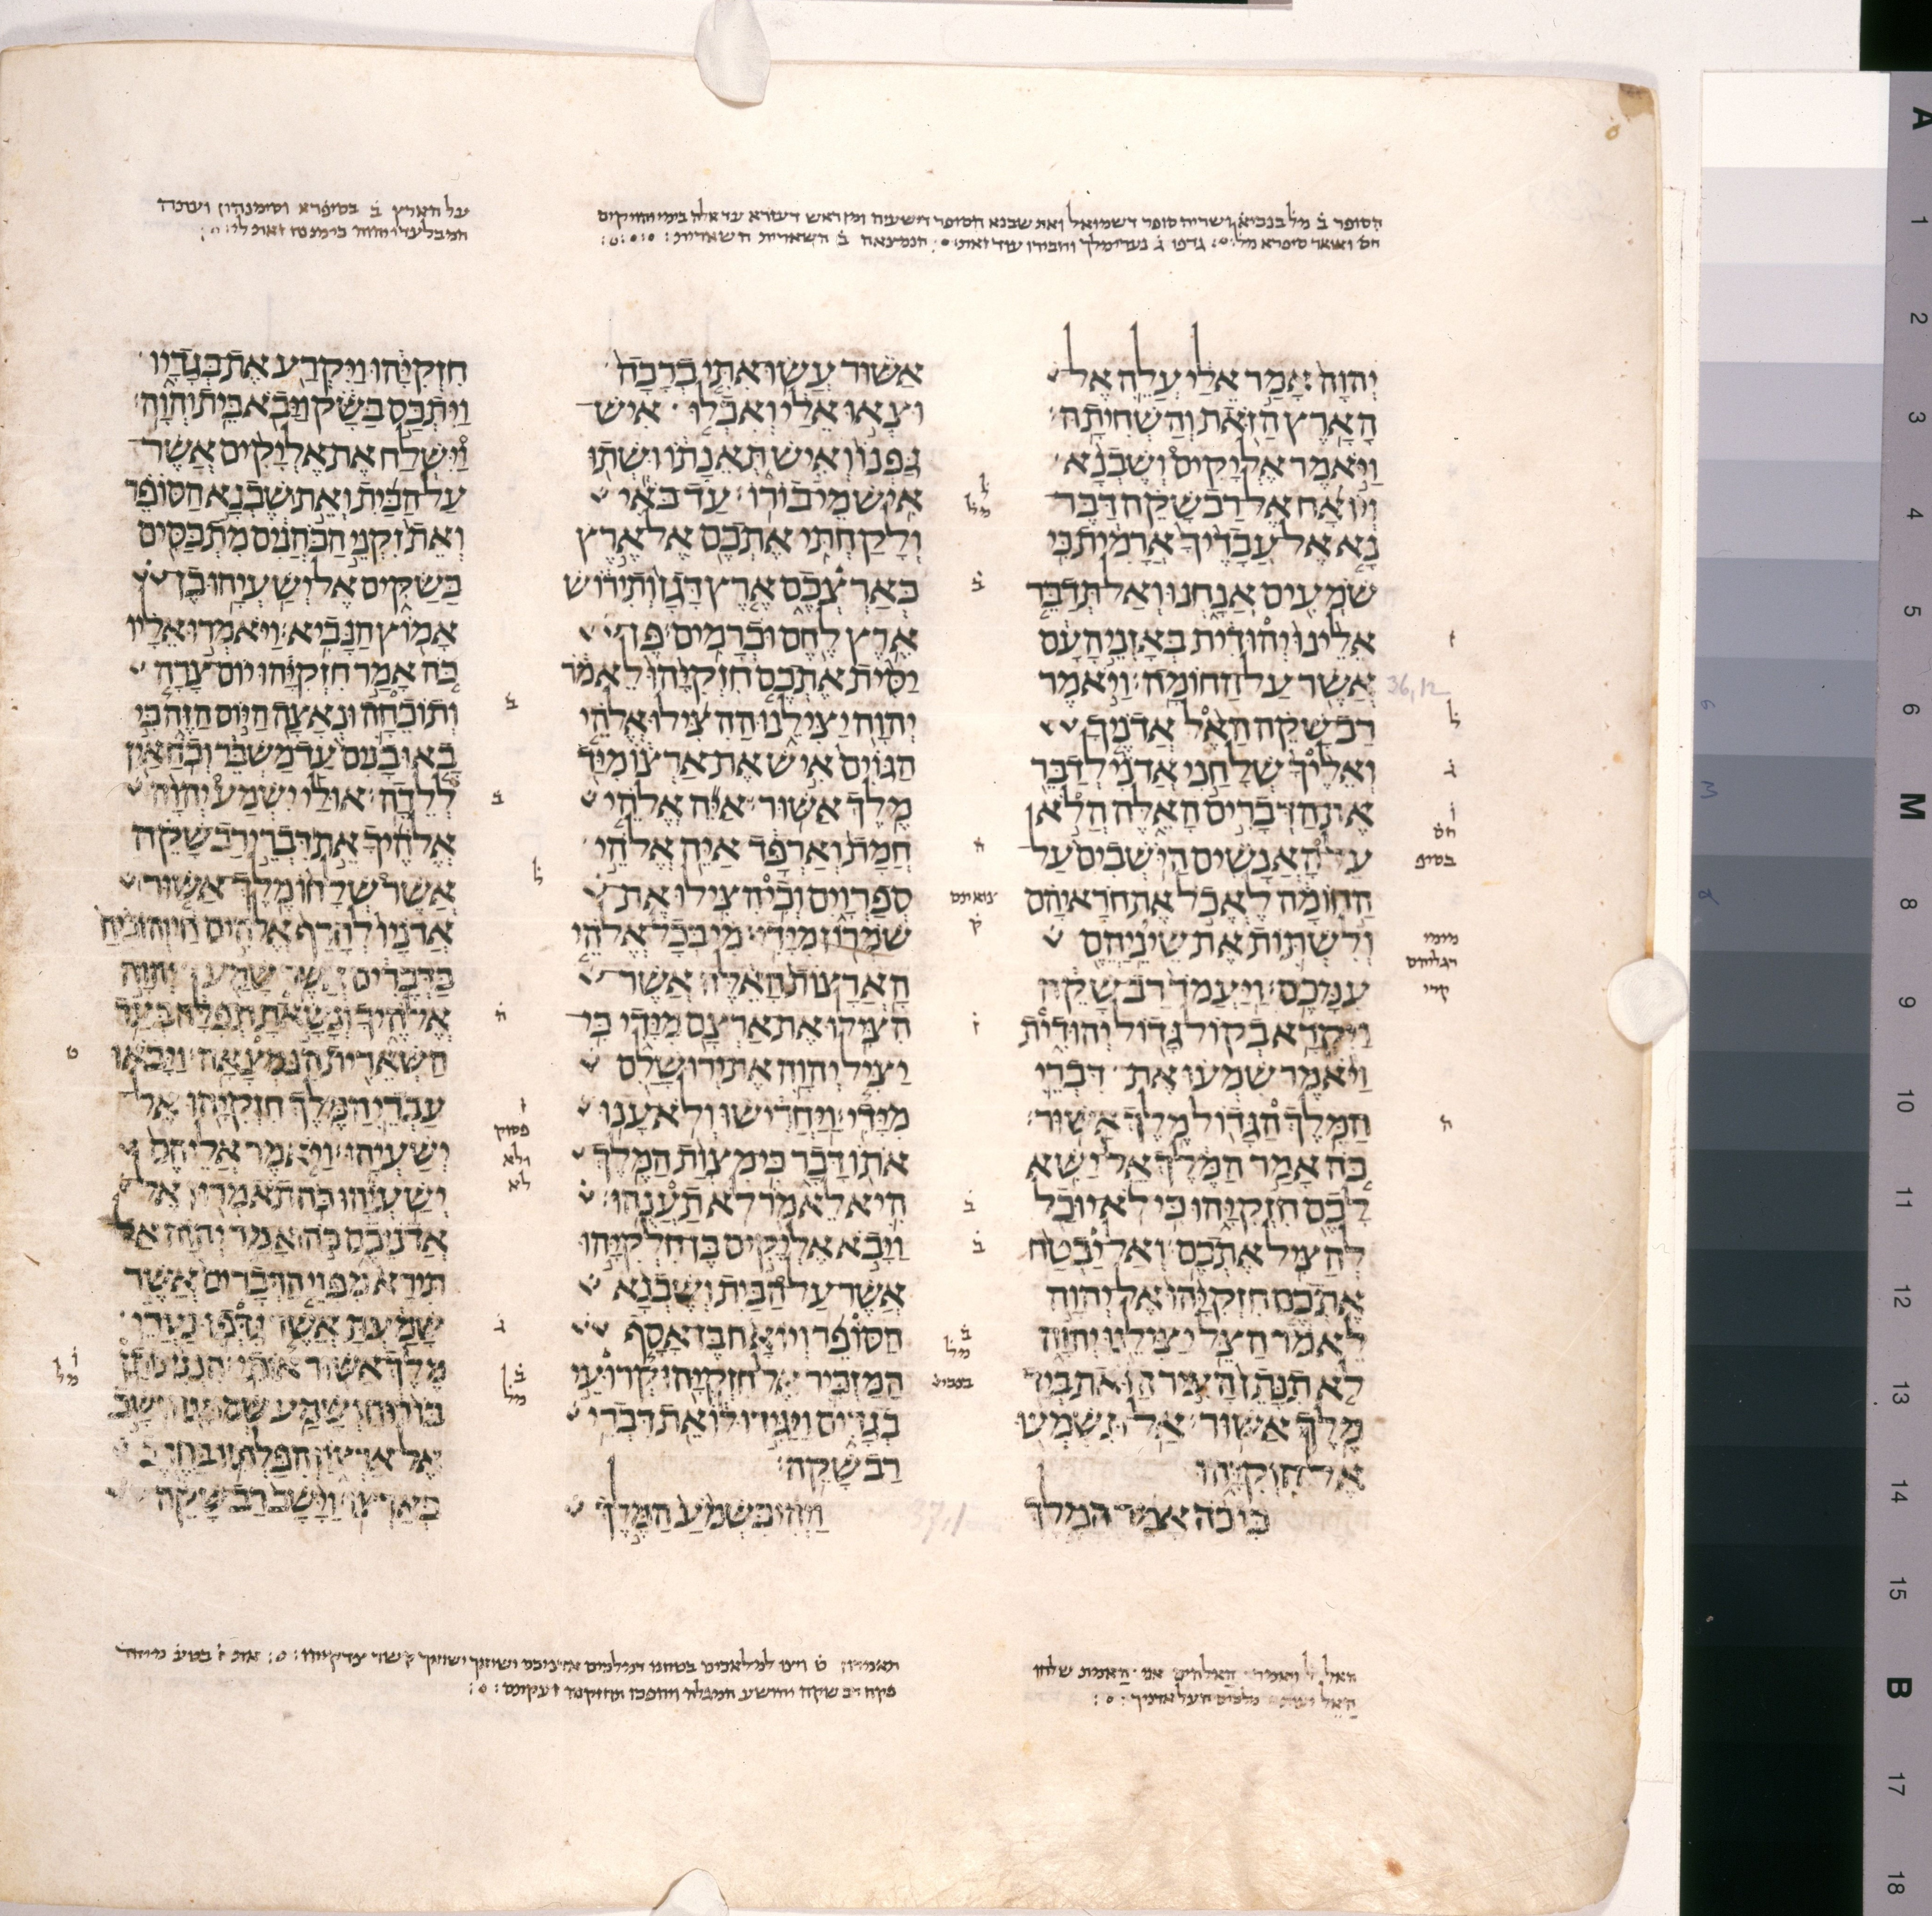 הסופר ב מל בנביא ושריה סופר דשמואל ואת שבנא הסופר דישעיה ומן ראש דעזרא עד אלה בימי יהויקים
חס ושאר סיפרא מל גדפו ג נערי מלך וחבירו עוד זאת הנמצאה ב השארית השארית
על הארץ ב בסיפרא וסימנהון ועתה
המבלעדי יהוה בימנסח זאת לי
יהוה אמר אלי עלה אל
הארץ הזאת והשחיתה׃
ויאמר אליקים ושבנא
ויואח אל רבשקה דבר
נא אל עבדיך ארמית כי
שמעים אנחנו ואל תדבר
אלינו יהודית באזני העם
אשר על החומה׃ ויאמר
36,12
רבשקה האל אדניך
ואליך שלחני אדני לדבר
את הדברים האלה הלא
על האנשים הישבים על
החומה לאכל את חראיהם
ולשתות את שיניהם
עמכם׃ ויעמד רבשקה
ויקרא בקול גדול יהודית
ויאמר שמעו את דברי
המלך הגדול מלך אשור׃
כה אמר המלך אל ישא
לכם חזקיהו כי לא יוכל
להציל אתכם׃ ואל יבטח
אתכם חזקיהו אל יהוה
לאמר הצל יצילנו יהוה
לא תנתן העיר הזאת ביד
מלך אשור׃ אל תשמעו
אל חזקיהו
כי כה אמר המלך
חס
בסיפ
מימי
רגליהם
קרי
אשור עשו אתי ברכה
וצאו אלי ואכלו איש
גפנו ואיש תאנתו ושתו
איש מי בורו׃ עד באי
ולקחתי אתכם אל ארץ
כארצכם ארץ דגן ותירוש
ארץ לחם וכרמים׃ פן
יסית אתכם חזקיהו לאמר
יהוה יצילנו ההצילו אלהי
הגוים איש את ארצו מיד
מלך אשור׃ איה אלהי
חמת וארפד איה אלהי
ספרוים וכי הצילו את
שמרון מידי׃ מי בכל אלהי
הארצות האלה אשר
הצילו את ארצם מידי כי
יציל יהוה את ירושלם
מידי׃ ויחרישו ולא ענו
אתו דבר כי מצות המלך
היא לאמר לא תענהו׃
ויבא אליקים בן חלקיהו
אשר על הבית ושבנא
הסופר ויואח בן אסף
המזכיר אל חזקיהו קרועי
בגדים ויגדו לו את דברי
רבשקה׃
37,1
ויהי כשמע המלך
מל
צואתם
ק
מל
בנביא
חזקיהו ויקרע את בגדיו
ויתכס בשק ויבא בית יהוה׃
וישלח את אליקים אשר
על הבית ואת שבנא הסופר
ואת זקני הכהנים מתכסים
בשקים אל ישעיהו בן
אמוץ הנביא׃ ויאמרו אליו
כה אמר חזקיהו יום צרה
ותוכחה ונאצה היום הזה כי
באו בנים עד משבר וכח אין
ללדה׃ אולי ישמע יהוה
אלהיך את דברי רבשקה
אשר שלחו מלך אשור
אדניו לחרף אלהים חי והוכיח
בדברים אשר שמע יהוה
אלהיך ונשאת תפלה בעד
השארית הנמצאה׃ ויבאו
עבדי המלך חזקיהו אל
ישעיהו׃ ויאמר אליהם
ישעיהו כה תאמרון אל
אדניכם כה אמר יהוה אל
תירא מפני הדברים אשר
שמעת אשר גדפו נערי
מלך אשור אותי׃ הנני נותן
בו רוח ושמע שמועה ושב
אל ארצו והפלתיו בחרב
בארצו׃ וישב רבשקה
פסוק
ולא
לא
מל
מל